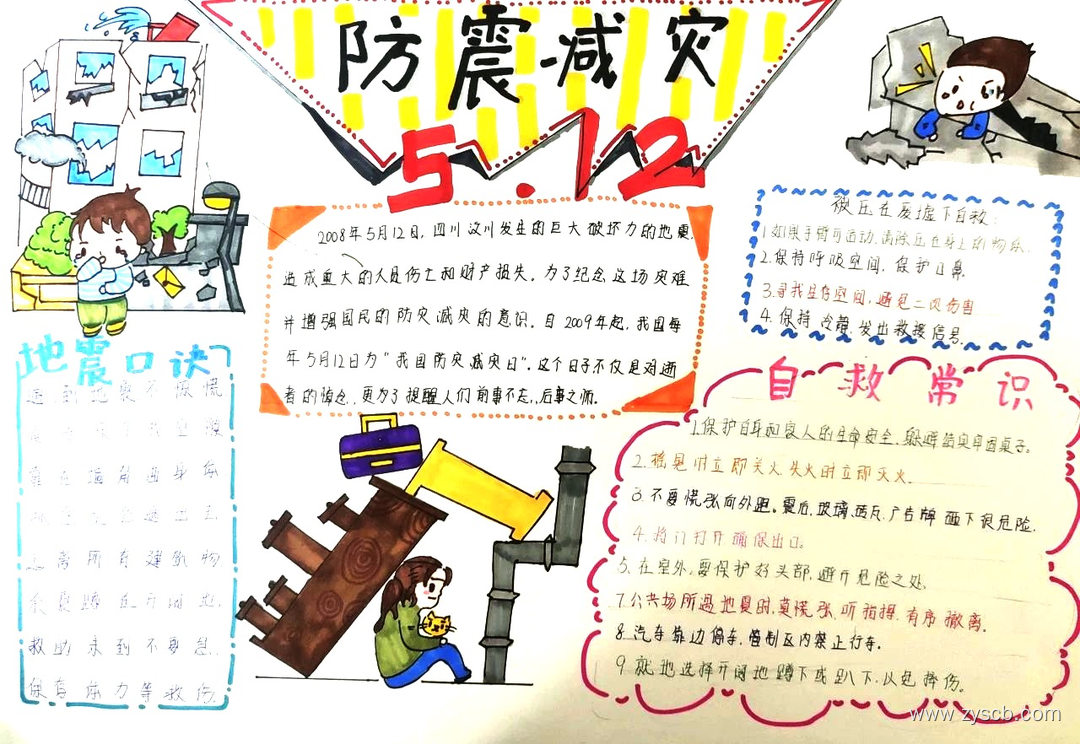 防震减灾
5.12
2008年5月12日，四川汶川发生的巨大破坏力的地震，
造成重大的人员伤亡和财产损失。为了纪念这场灾难
并增强国民的防灾减灾的意识。自2009年起，我国每
年5月12日为"我国防灾减灾日"。这个日子不仅是对逝
者的悼念，更为了提醒人们前事不忘，后事之师。
被压在废墟下自救：
1.如果手臂可活动，清除压在身上的物体。
2.保持呼吸空间，保护口鼻。
3.寻找生存空间，避免二次伤害
4.保持冷静，发出救援信号。
地震口诀
遇到地震不惊慌
身体
远离所有建筑物
余震蹲在开阔地
救助未到不要急
保存体力等救伤
自救常识
1.保护自身和家人的生命安全，躲避结实牢固桌子。
2.摇晃时立即关火失火时立即灭火
3.不要慌张向外跑。震后，玻璃，砖瓦，广告牌砸下很危险。
4.将门打开确保出口。
5.在室外，要保护好头部，避开危险之处。
7.公共场所遇地震时，莫慌张，听指挥，有序撤离。
8.汽车靠边停车，管制区内禁止行车。
9.就地选择开阔地蹲下或趴下，以免摔伤。
www.zyscb.com